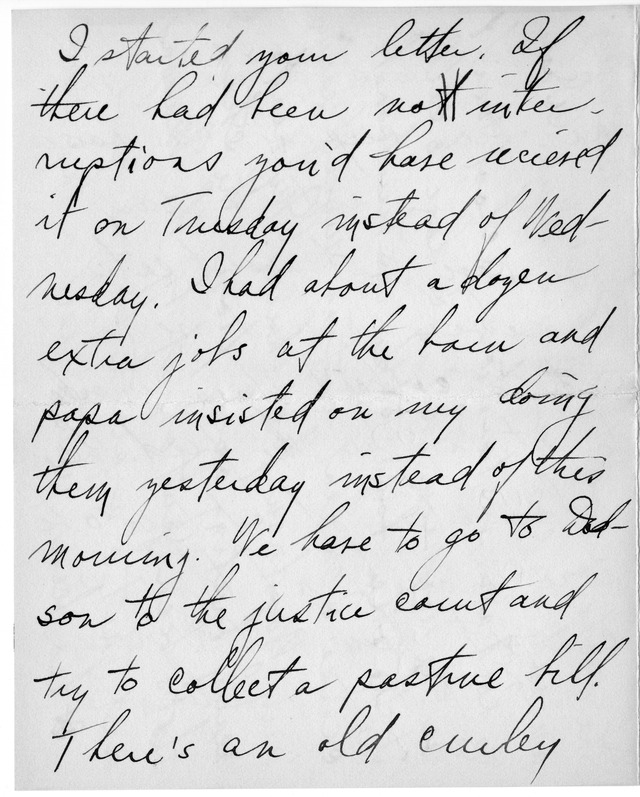 I started your letter. If
there had been no inter-
ruptions you'd have recieved
it on Tuesday instead of Wed-
nesday. I had about a dozen
extra jobs at the barn and
papa insisted on my doing
them yesterday instead of this
morning. We have to go to Dod-
son to the justice court and
try to collect a pasture bill.
There's an old curley